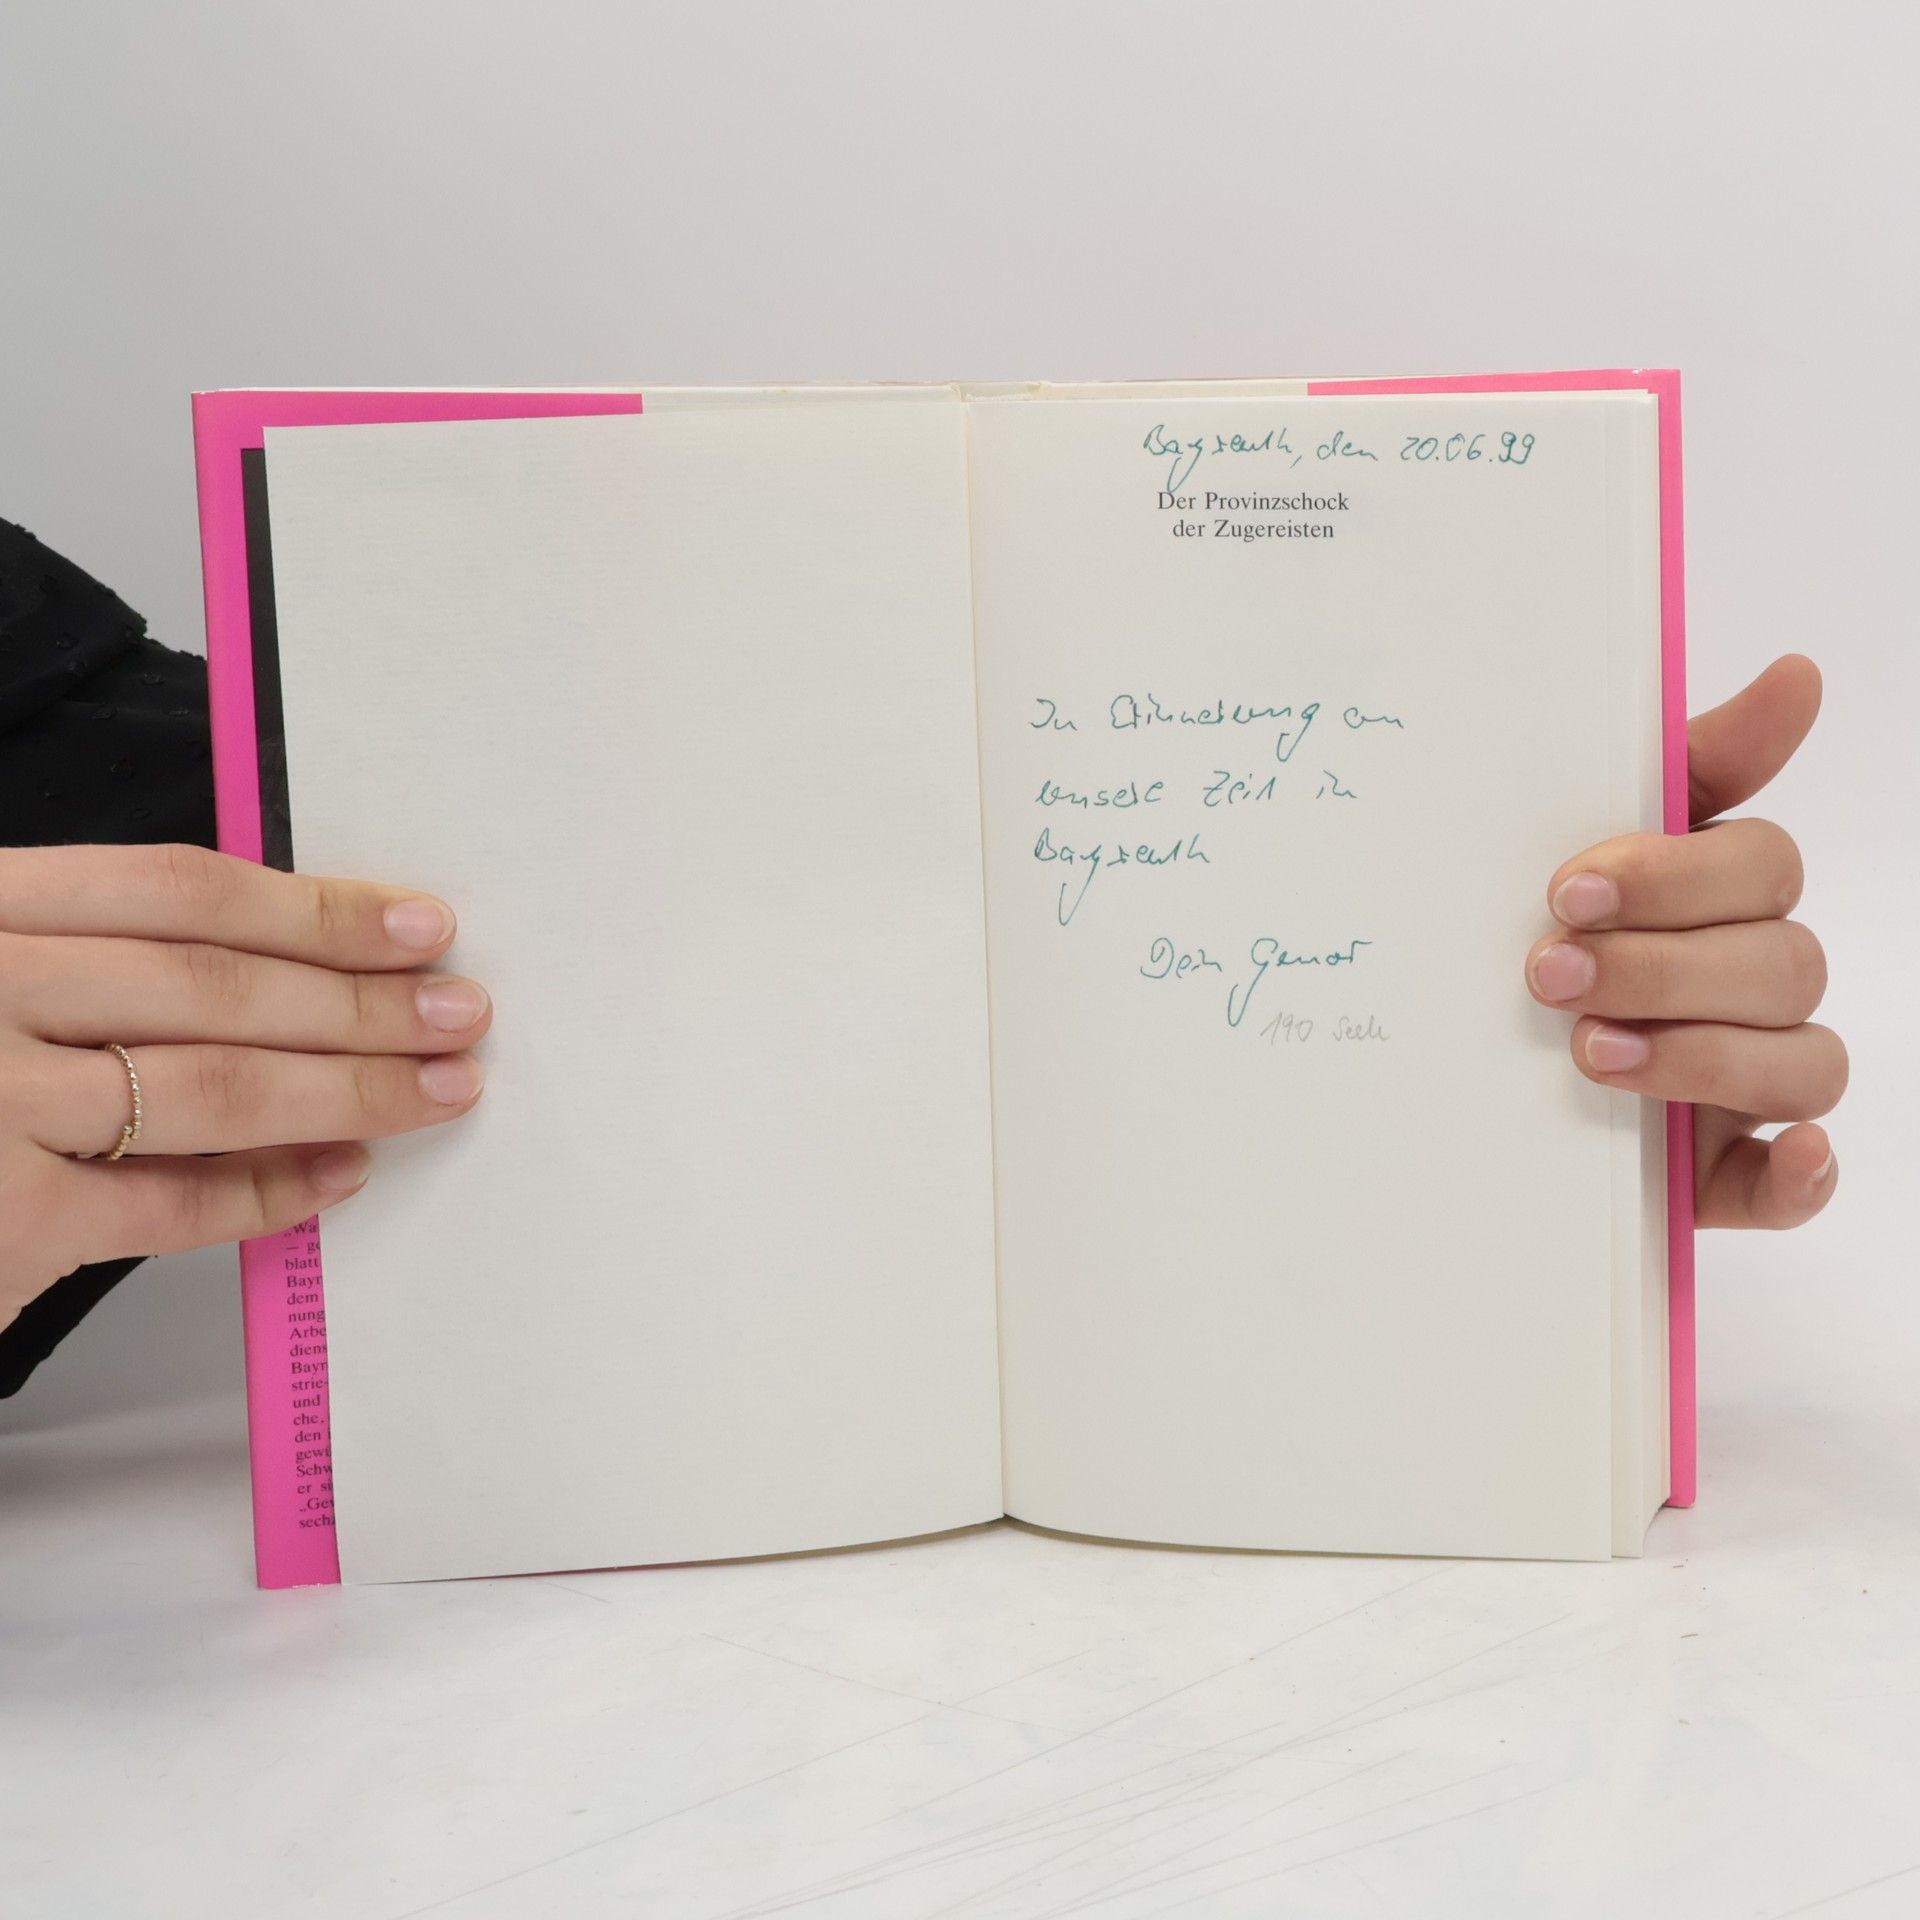 „Wa
— ge
blatt
Bayr
dem
nung
Arbe
diens
Bayr
strie-
und
che,
den
gewi
Schw
er si
„Gew
sech
Bayreuth, den 20.06.99
Der Provinzschock
der Zugereisten
In Erinnerung an
unsere Zeit in
Bayreuth
Dein
190